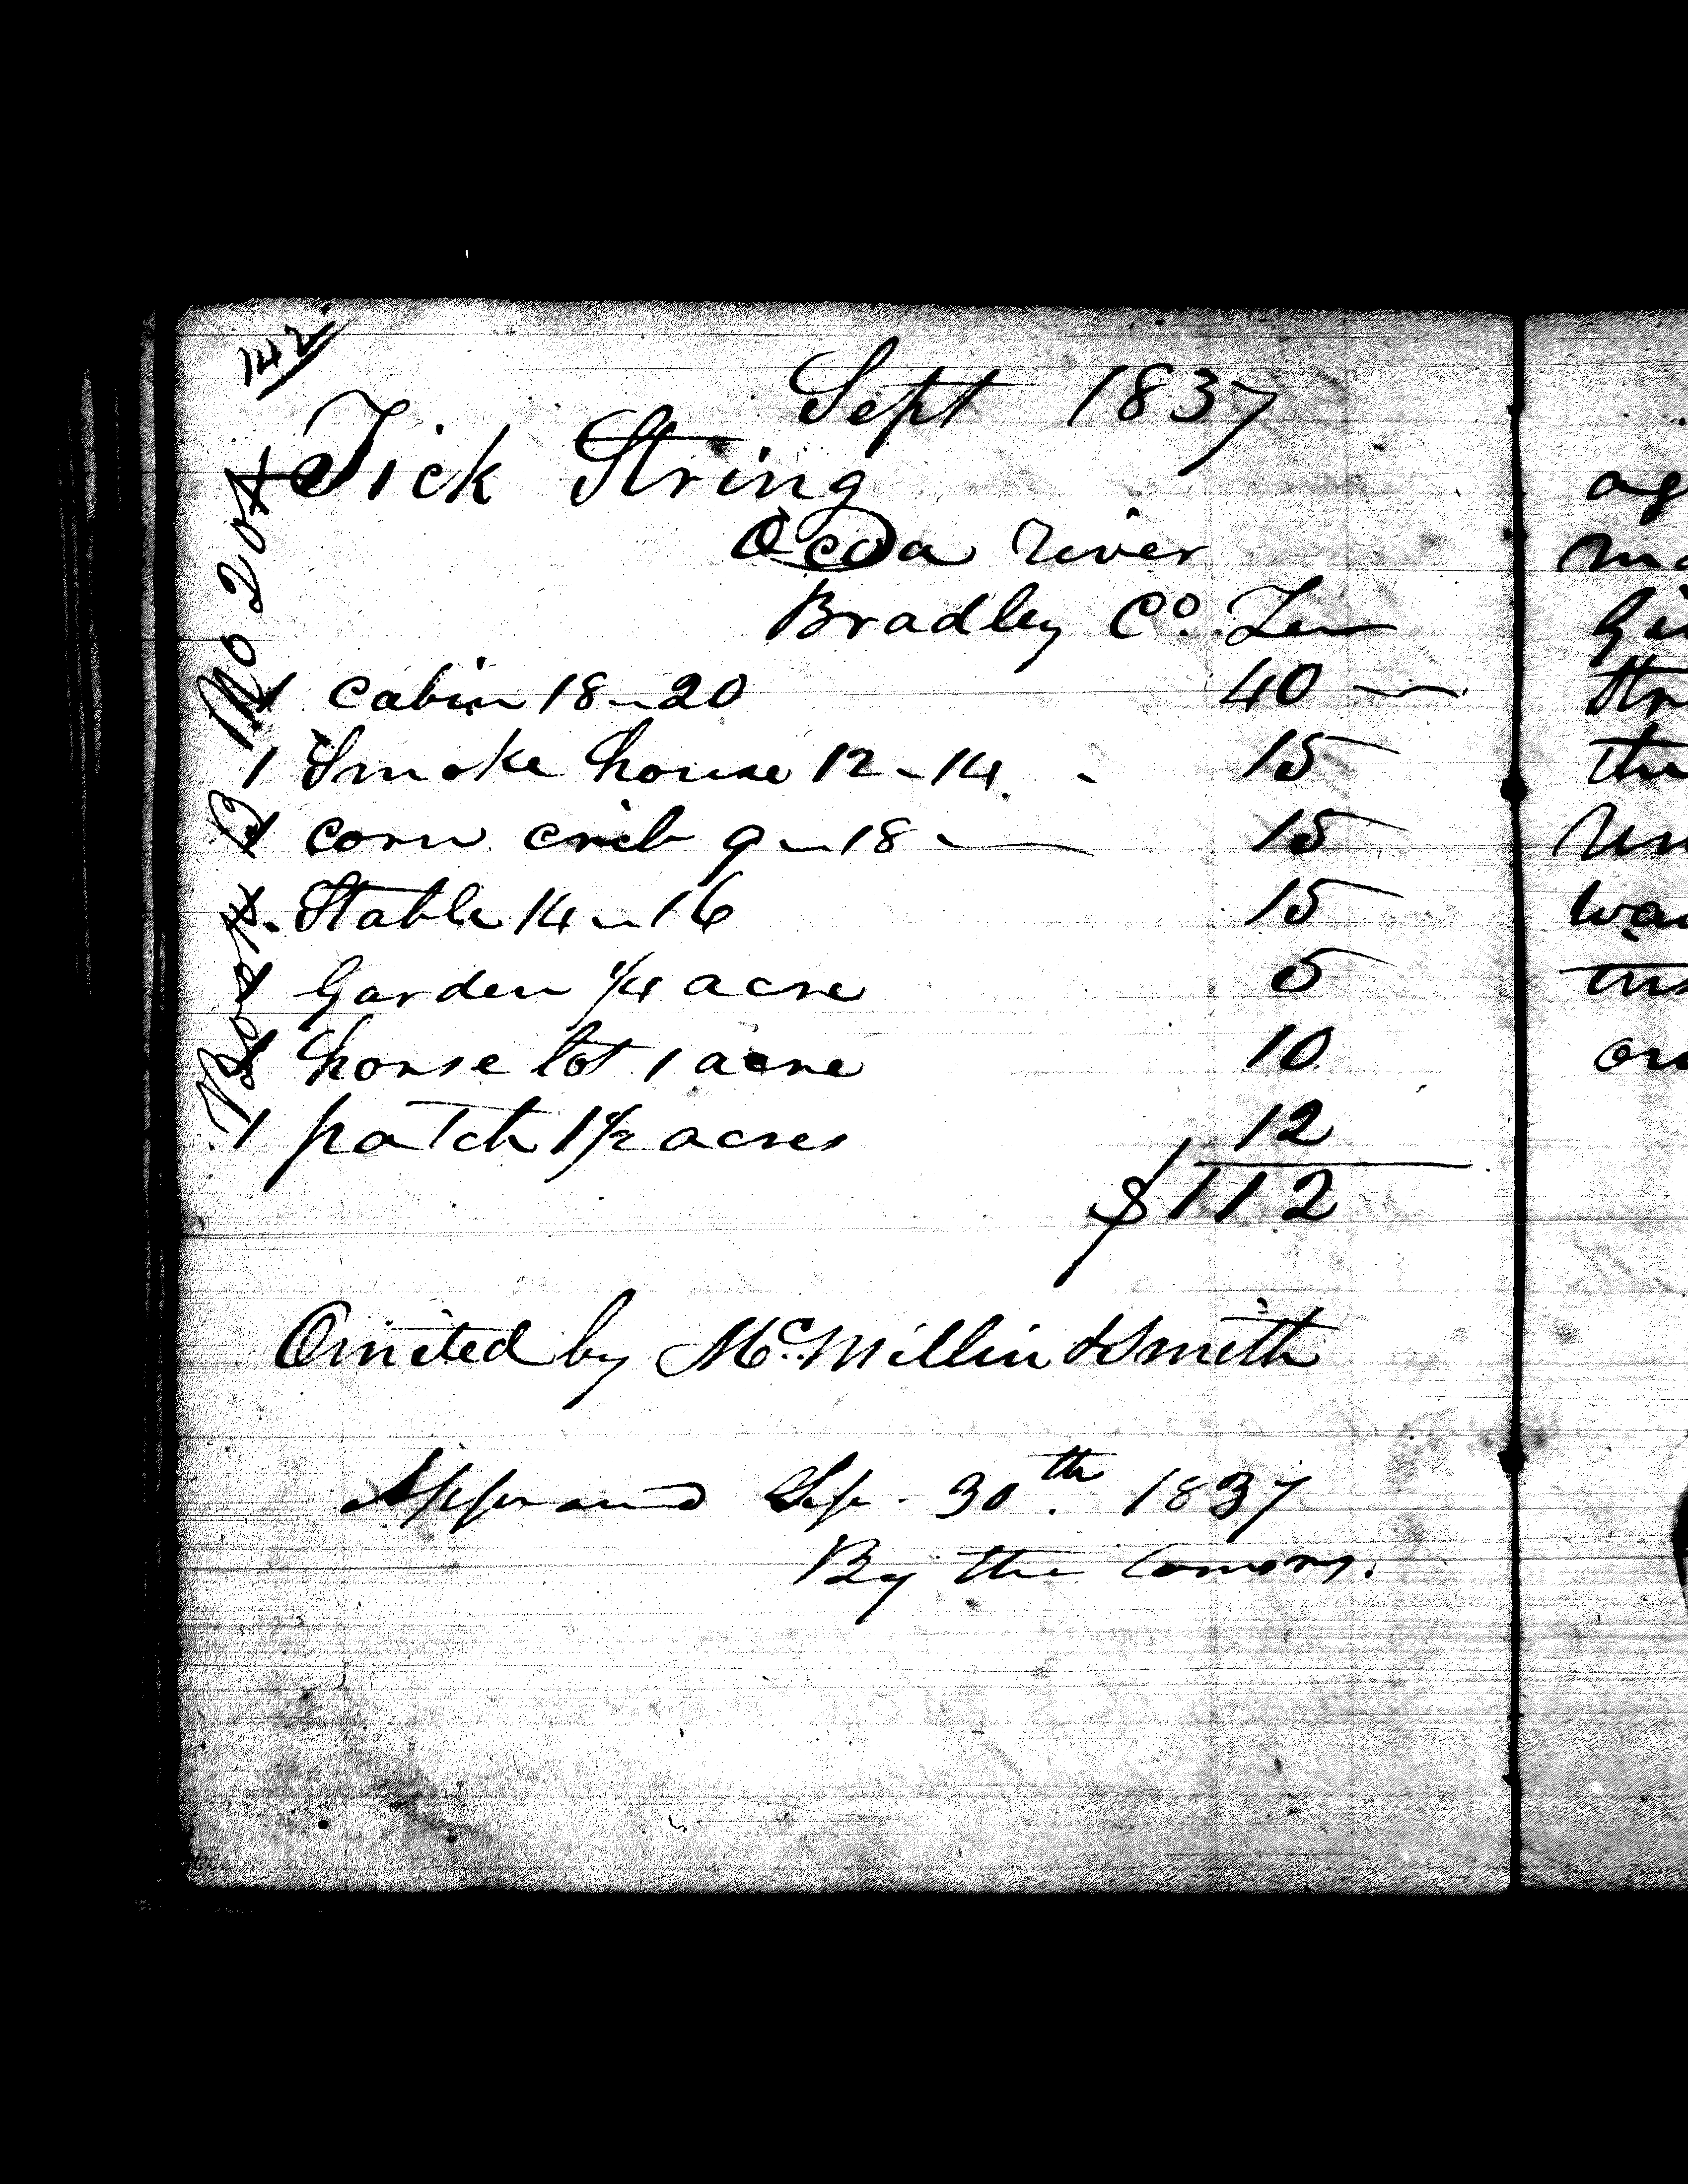 142
Sept 1837
Tick String
Ocoa River
Bradley Co. Ten
1 Cabin 18-20 40
1 Smoke house 12-14 15
1 corn crib 9-18 15
1 Stable 14-16 15
1 Garden 1/4 acre 5
1 horse lot 1 acre 10
1 patch 1 1/2 acres 12
$112
Omited by McMillin & Smith
Approved Sep. 30th 1837
By the Comrs.
Book D No 204
ag
thr
the
wa